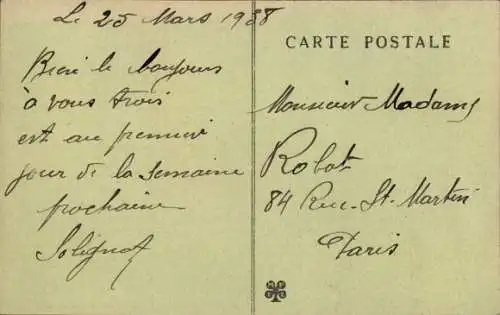 Le 25 Mars 1938
Bien le bonjours
à vous trois
est au premier
jour de la semaine
prochaine
Solignat
CARTE POSTALE
Monsieur Madame
Robat
84 Rue St. Martin
Paris